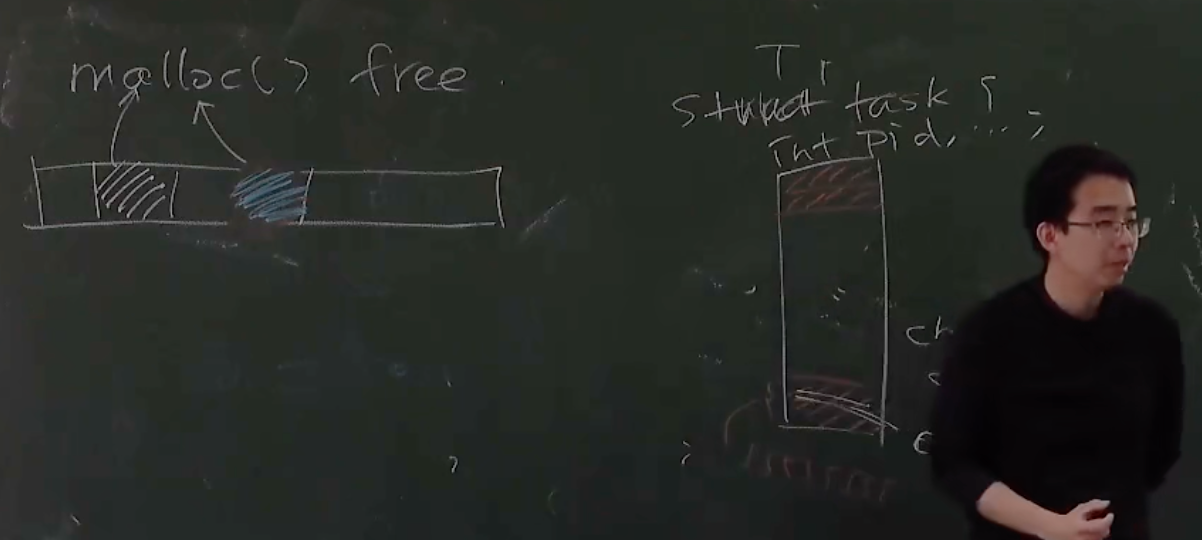 malloc() free
T
struct task {
int pid, ... ;
ch